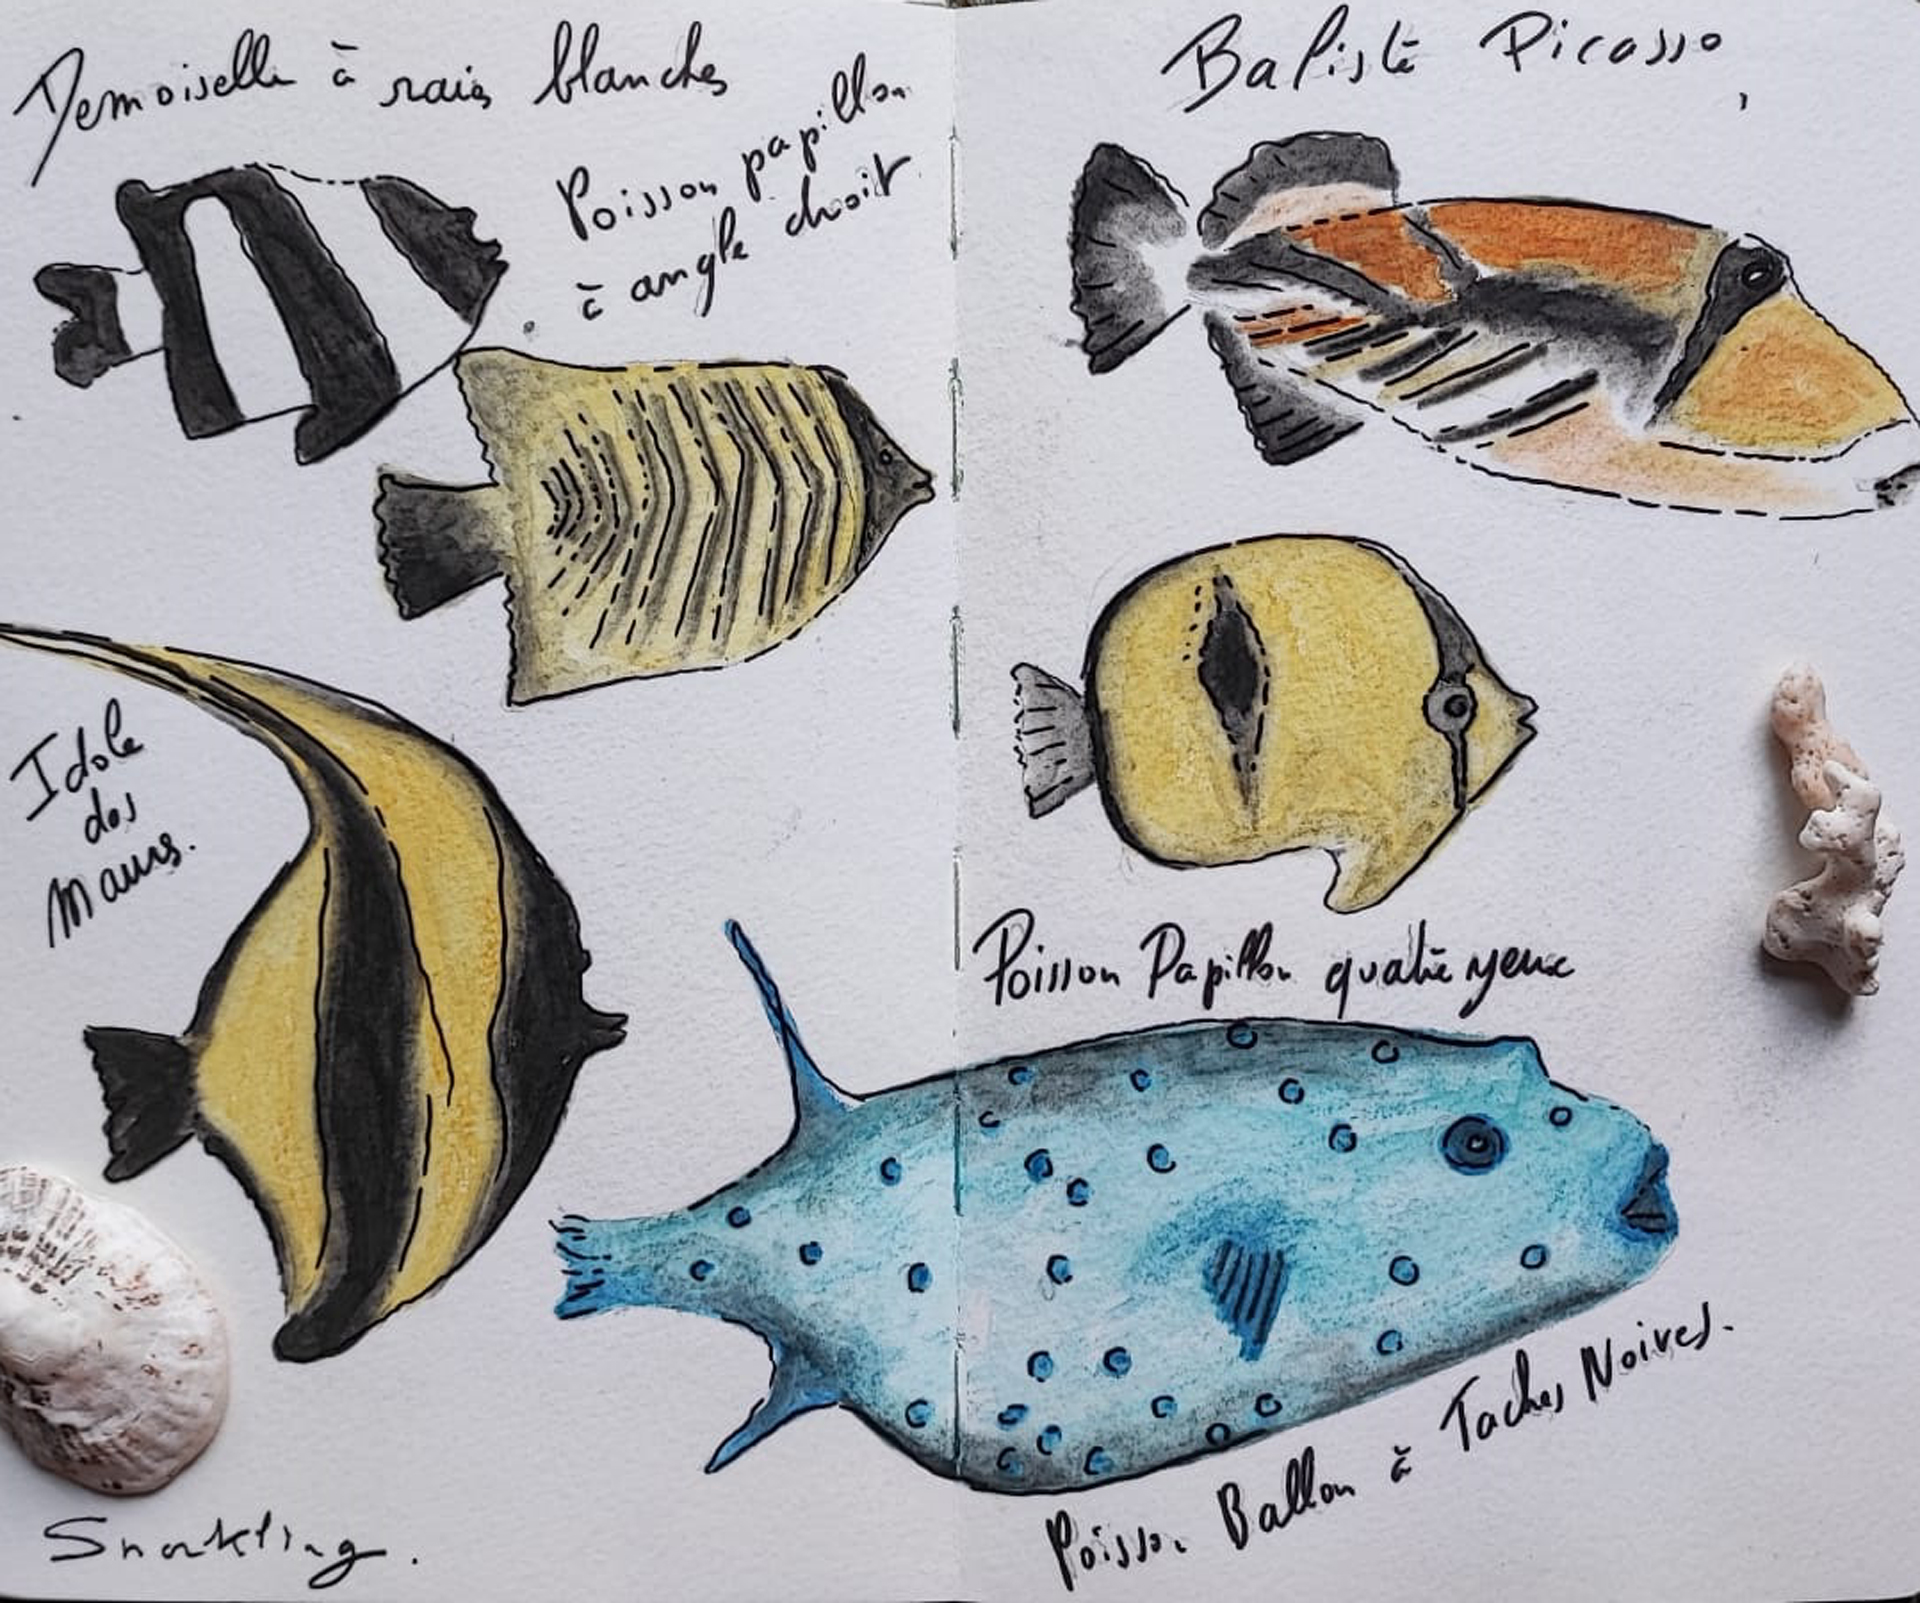 Demoiselle à raies blanches
Poisson papillon
à angle droit
Idole
des
Maures.
Snorkling.
Baliste Picasso
Poisson Papillon quatre yeux
Poisson Ballon à Taches Noires.